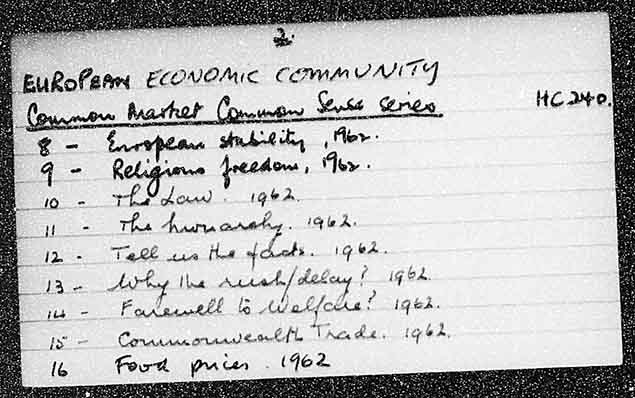 2.
EUROPEAN ECONOMIC COMMUNITY
Common Market Common Sense series HC 240.
8 - European stability, 1962.
9 - Religious freedom, 1962.
10 - The Law. 1962.
11 - The monarchy. 1962.
12 - Tell us the facts. 1962.
13 - Why the rush/delay? 1962.
14 - Farewell to Welfare? 1962.
15 - Commonwealth Trade. 1962.
16 Food prices. 1962